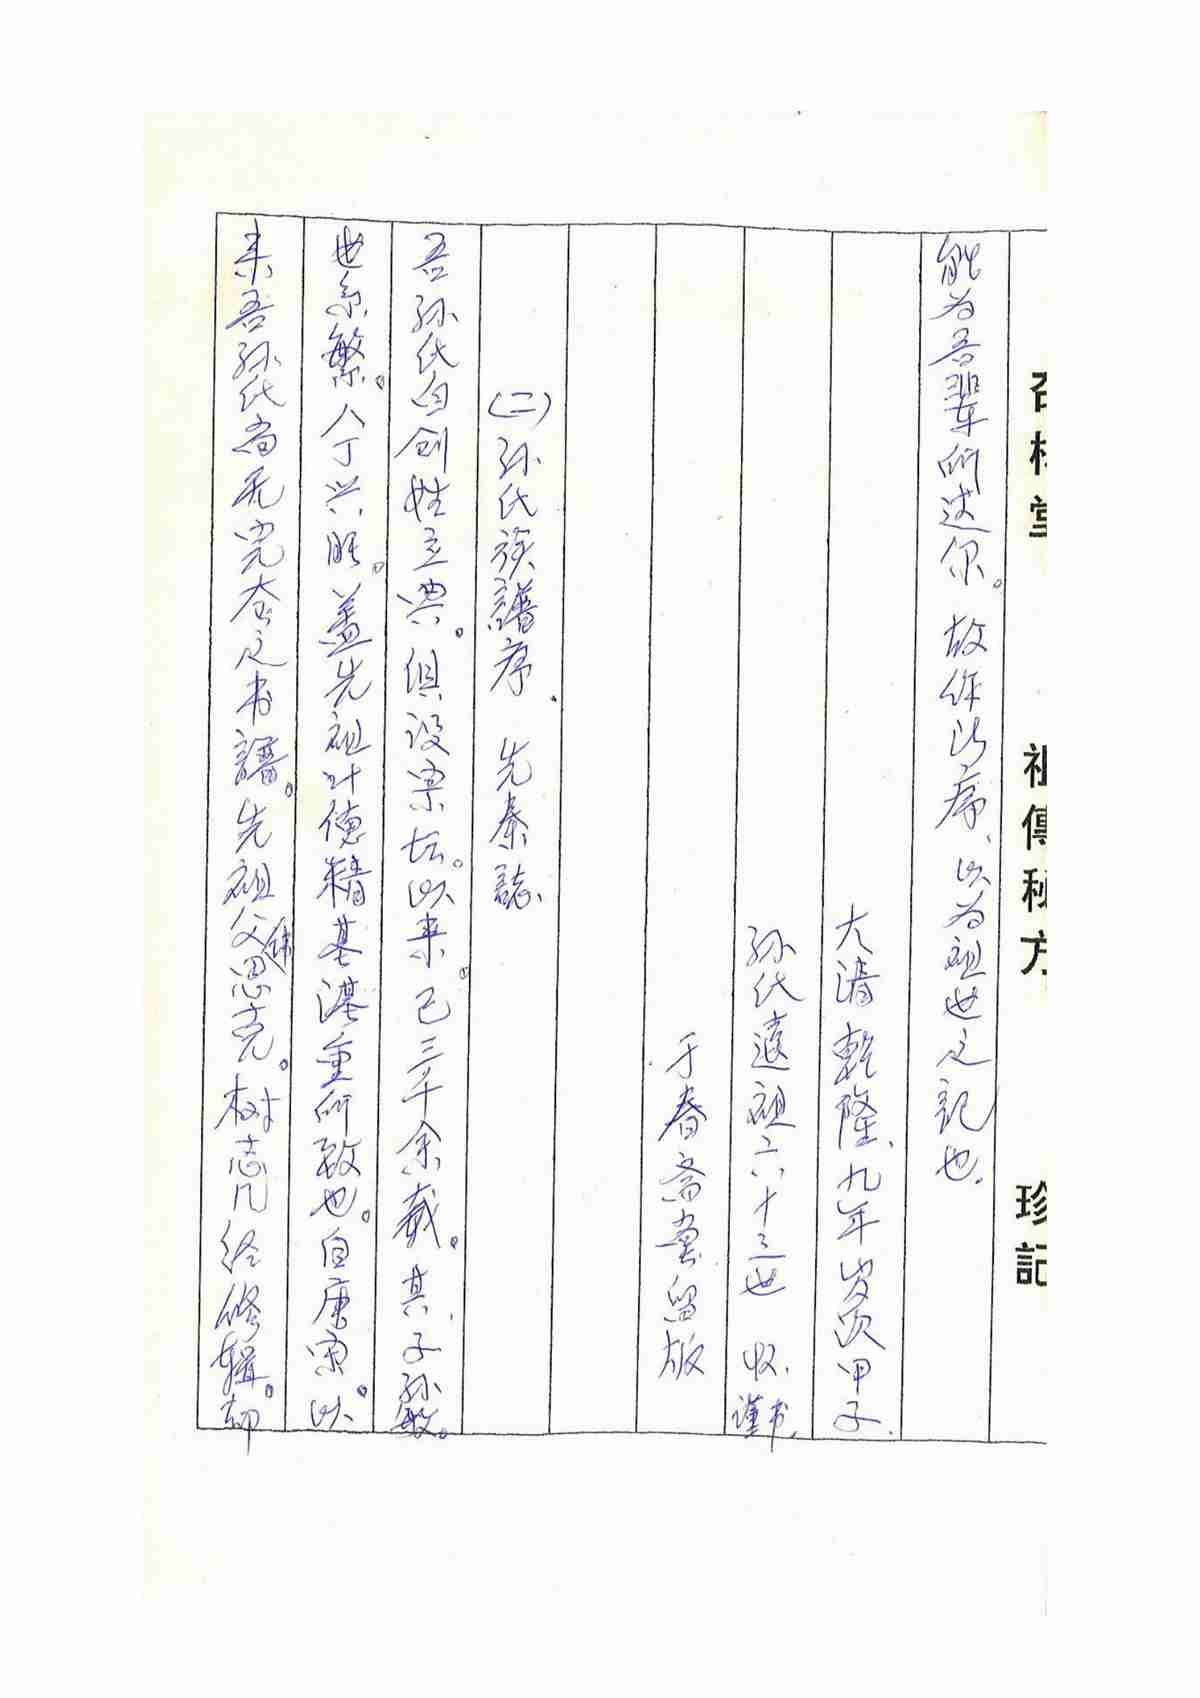 杏林堂 祖傳秘方 珍記
能为吾辈所述尔。故作此序、以为祖世之記也.
大清乾隆九年岁次甲子.
孙氏遠祖六十三世 收.謹书.
于春斋堂留版
(二)孙氏族譜序. 先秦誌
吾孙氏自创姓立典。俱设宗坛。以来。已三千余载。其.子孙繁。
世系繁。人丁兴旺。盖先祖计德精基湛重所致也。自唐宋。以
来吾孙氏尚无完夲之书譜。先祖父思克。树志几经修辑。却